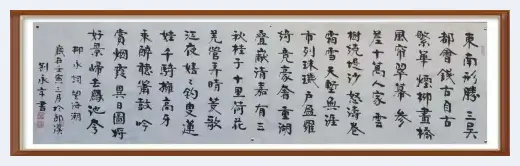 東南形勝三吳
都會錢塘自古
繁華煙柳畫橋
風簾翠幕參
差十萬人家雲
樹繞堤沙怒濤卷
霜雪天塹無涯
市列珠璣戶盈羅
綺競豪奢重湖
疊巘清嘉有三
秋桂子十里荷花
羌管弄晴菱歌
泛夜嬉嬉釣叟蓮
娃千騎擁高牙
乘醉聽簫鼓吟
賞煙霞異日圖將
好景歸去鳳池夸
柳永詞望海潮
壬寅三月
劉永書